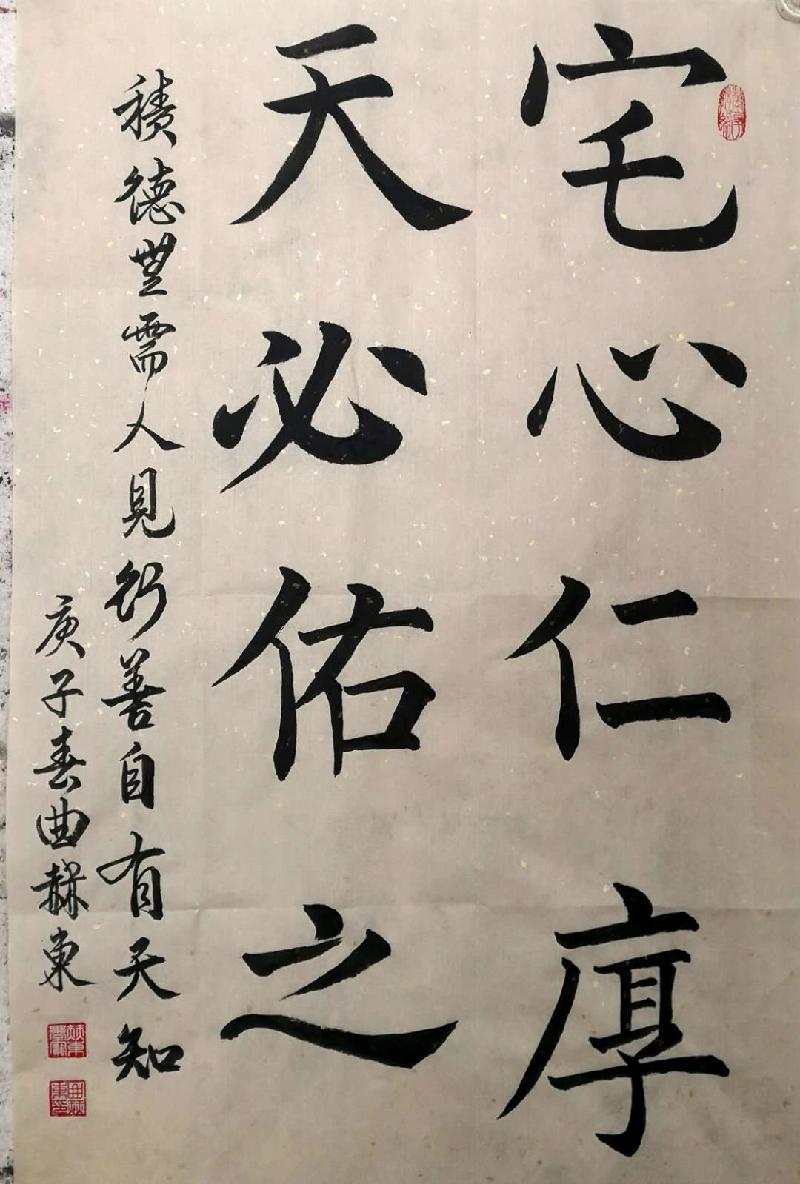 宅心仁厚
天必佑之
積德無需人見行善自有天知
庚子春曲赫東